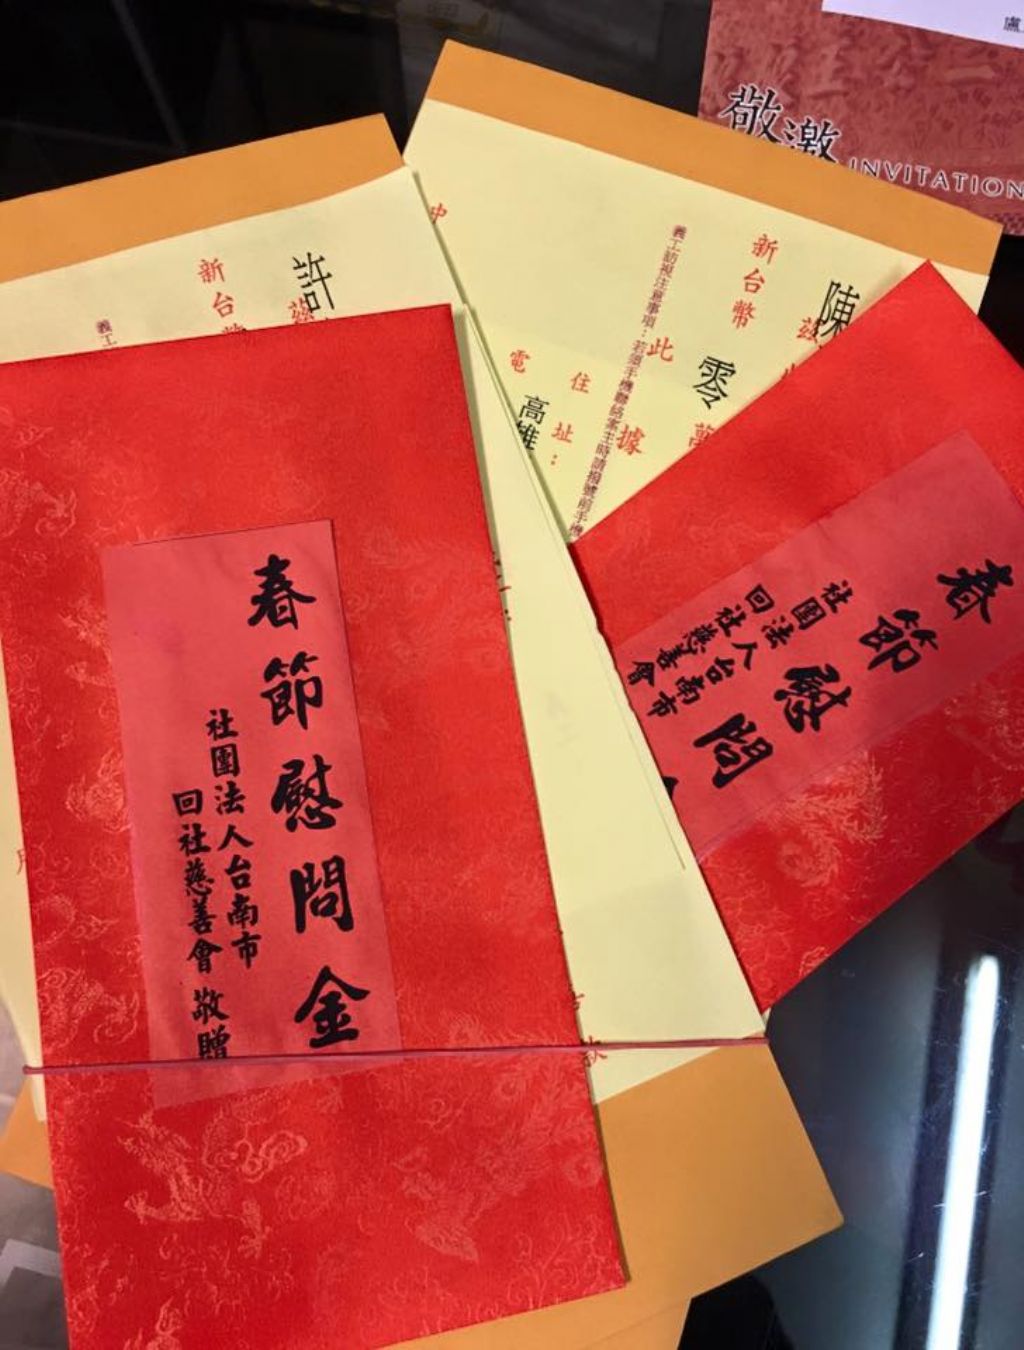 春節慰問金
社團法人台南市
回社慈善會 敬贈
春節慰問
社團法人台南市
回社慈善會
許
茲
新台幣
義工
陳
茲
新台幣
零
萬
此
據
義工訪視注意事項：若須手機聯絡案主時請撥號前手機
住址：
高雄
電
中
敬邀
INVITATION
盧